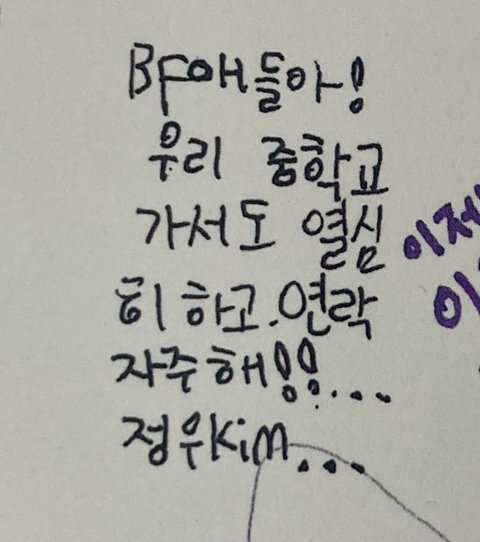 BF애들아!
우리 중학교
가서도 열심
히 하고. 연락
자주해!!...
정우Kim...